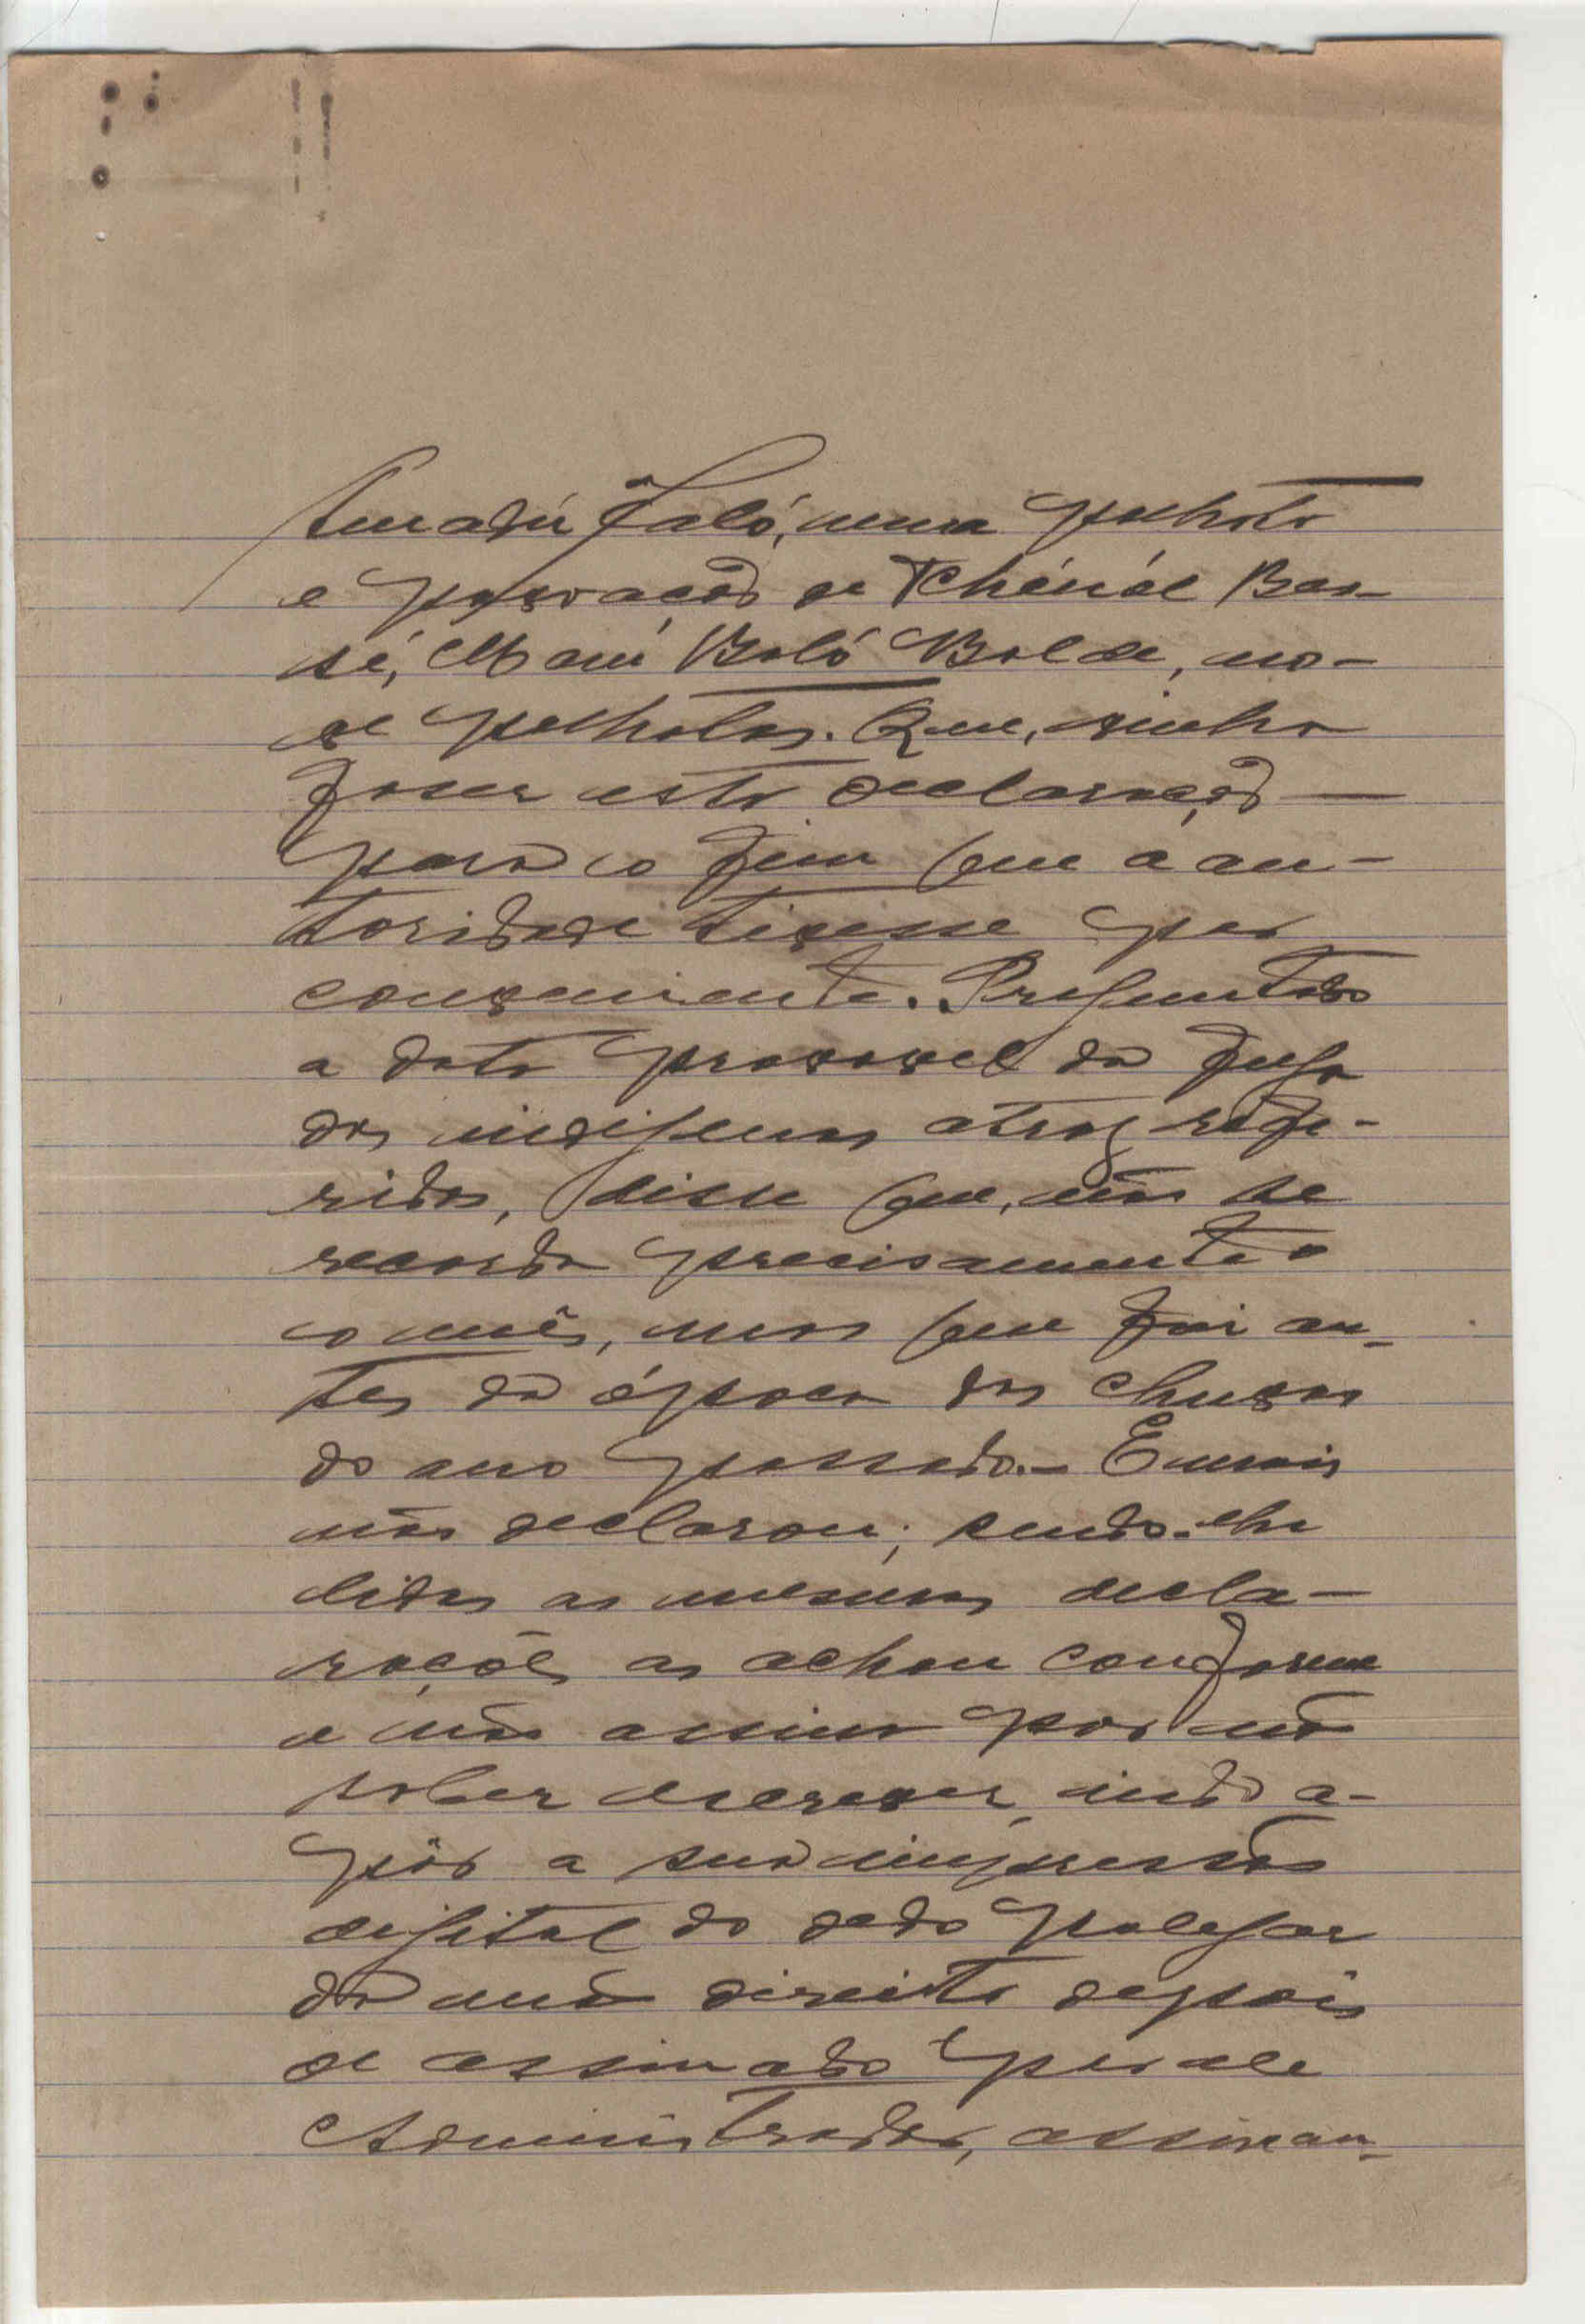 Amadú Jaló, uma palhota
e povoação de Tchénál Ban-
sé, Mamú Baló Balde, no-
ve palhotas. Que, vinha
fazer esta declaração
para o fim que a au-
toridade tivesse por
conveniente. Preguntado
a data provavel da fuga
dos indigenas atraz refe-
ridos, disse que, não se
recorda precisamente o
o mês, mas que foi an-
tes da época das chuvas
do ano passado. - E mais
não declarou; sendo-lhe
lidas as mesmas decla-
rações as achou conforme
e não assina por não
saber escrever, indo a-
pôr a sua impressão
digital do dedo polegar
da mão direita depois
de assinado por ele
Administrador, assinan-